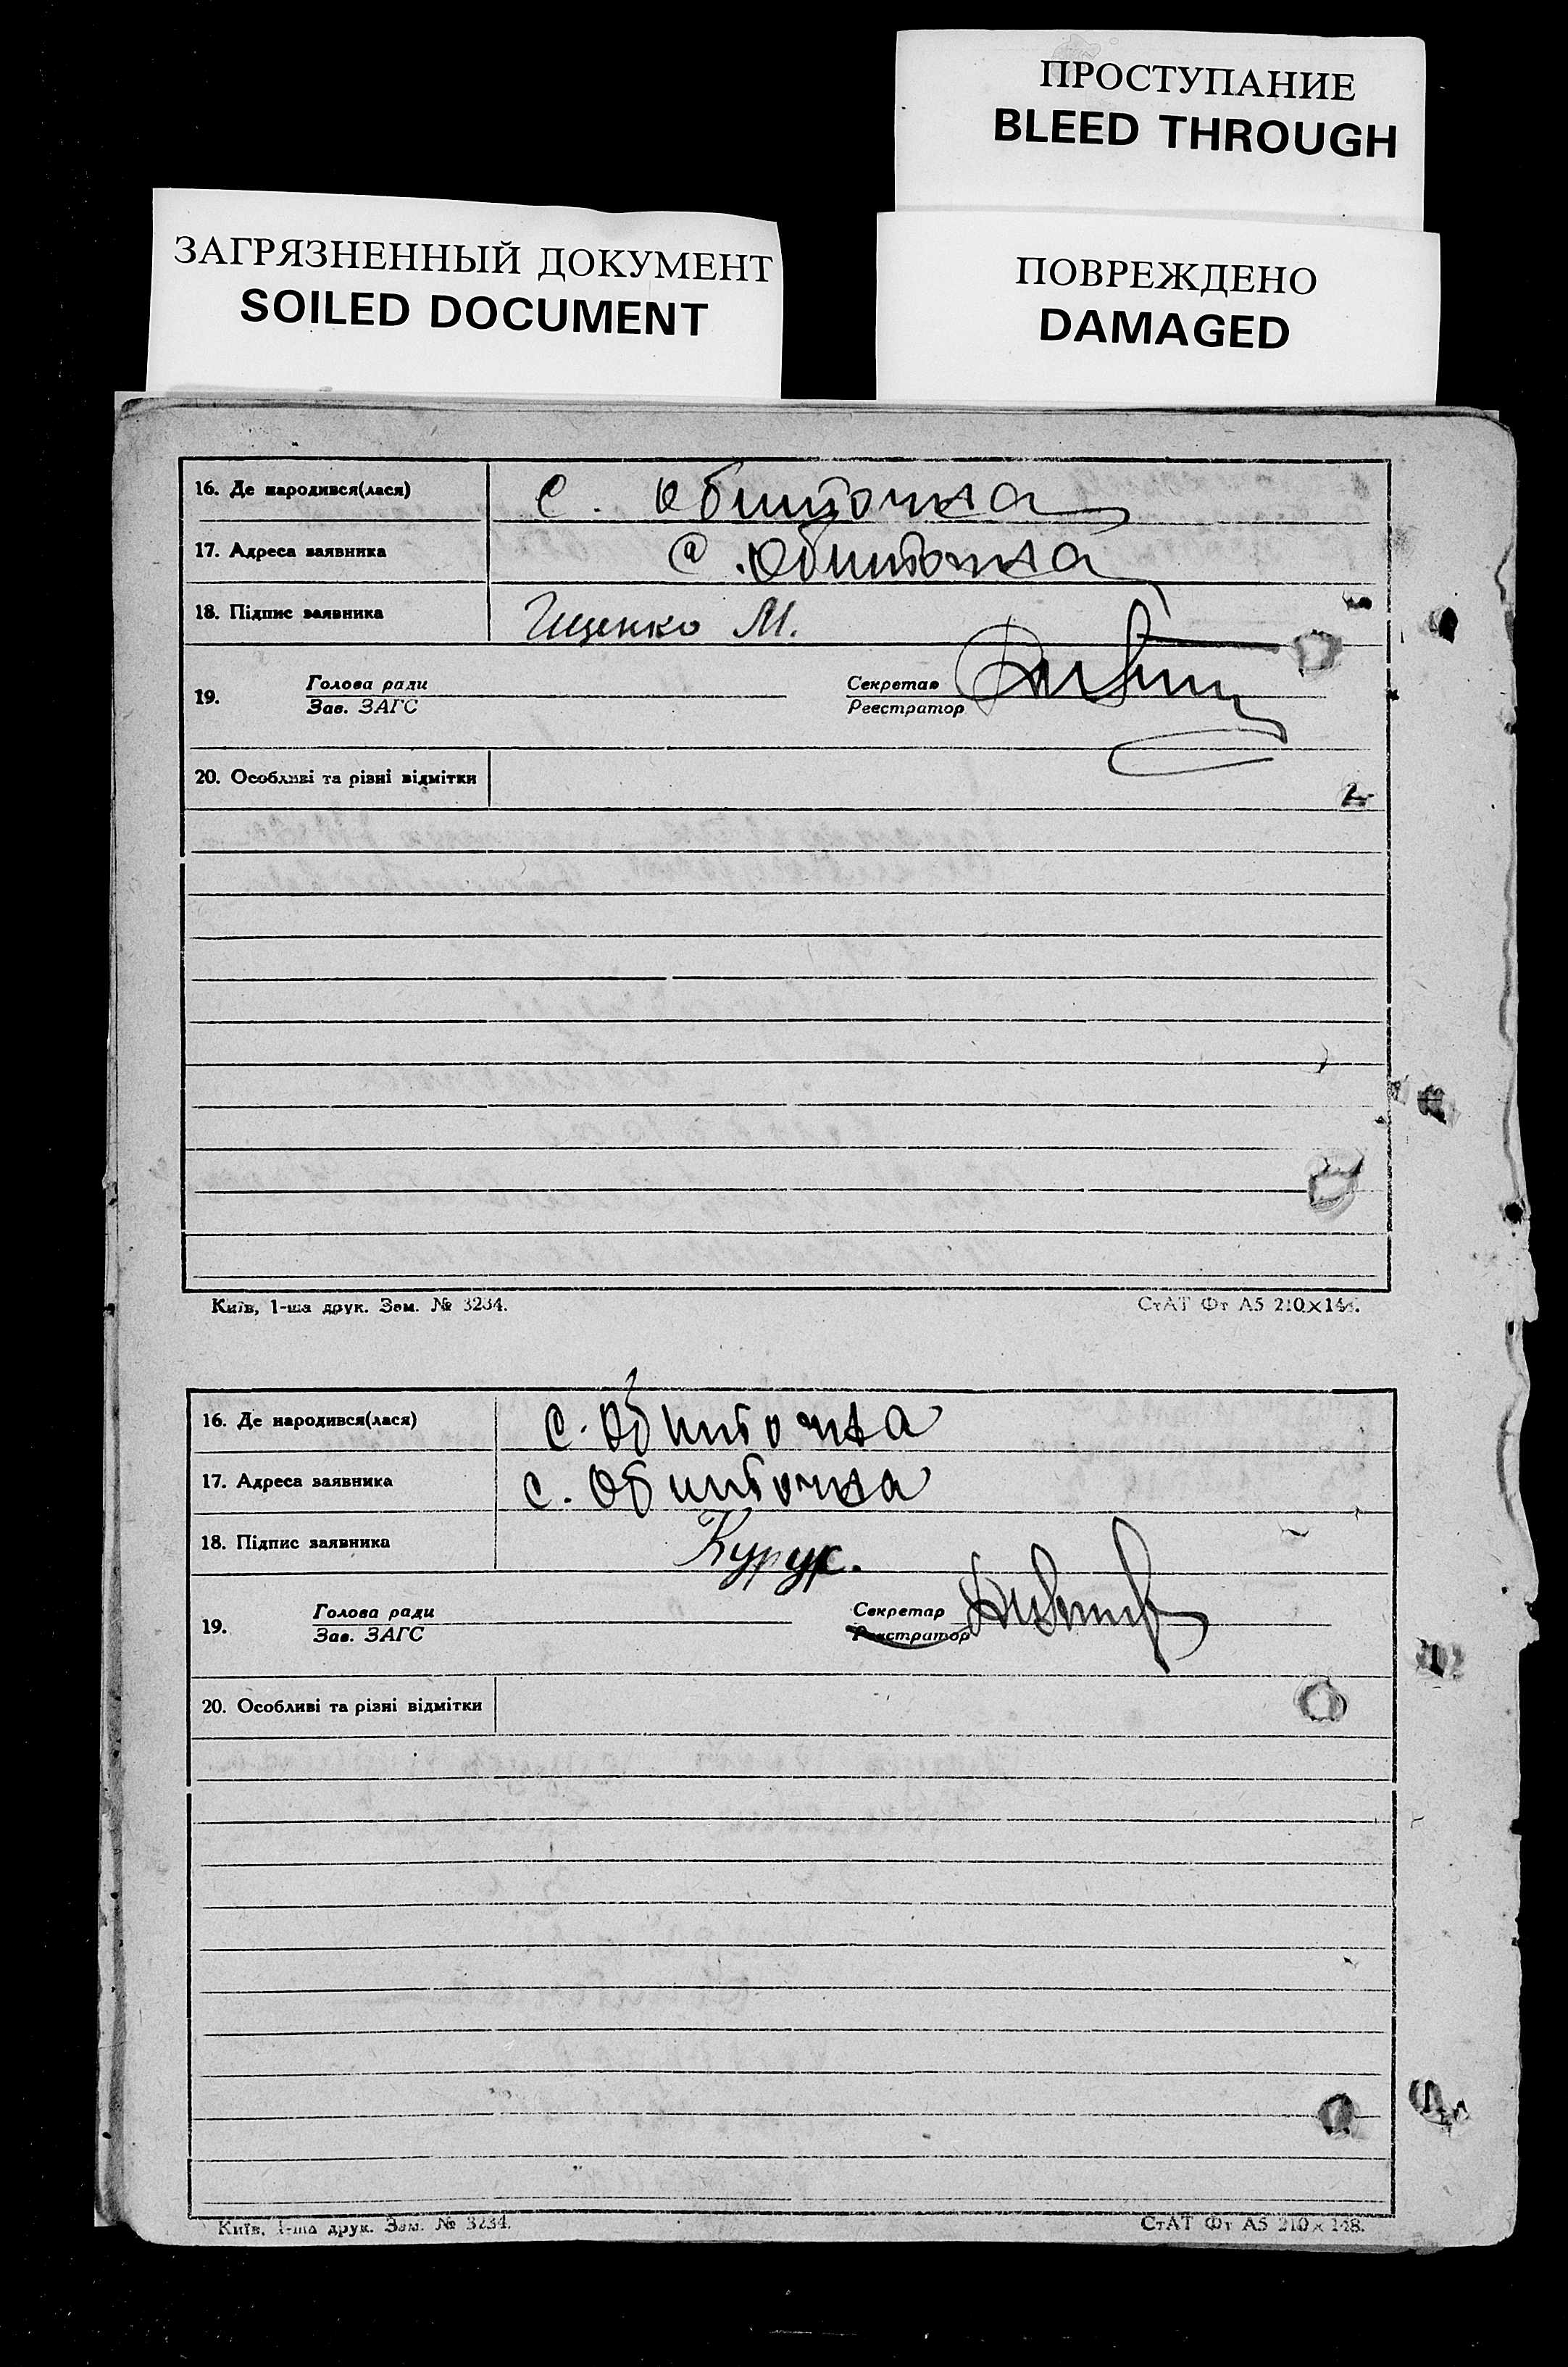 ПРОСТУПАНИЕ
BLEED THROUGH
ЗАГРЯЗНЕННЫЙ ДОКУМЕНТ
SOILED DOCUMENT
ПОВРЕЖДЕНО
DAMAGED
16. Де народився(лася) с. Обиточка
17. Адреса заявника с. Обиточка
18. Підпис заявника Іщенко М.
19. Голова ради Секретар
Зав. ЗАГС Реєстратор
20. Особливі та різні відмітки
2
Київ, 1-ша друк. Зам. № 3234. СтАТ Фт А5 210×148.
16. Де народився(лася) с. Обиточка
17. Адреса заявника с. Обиточка
18. Підпис заявника
19. Голова ради Секретар
Зав. ЗАГС Реєстратор
20. Особливі та різні відмітки
Київ, 1-ша друк. Зам. № 3234. СтАТ Фт А5 210×148.